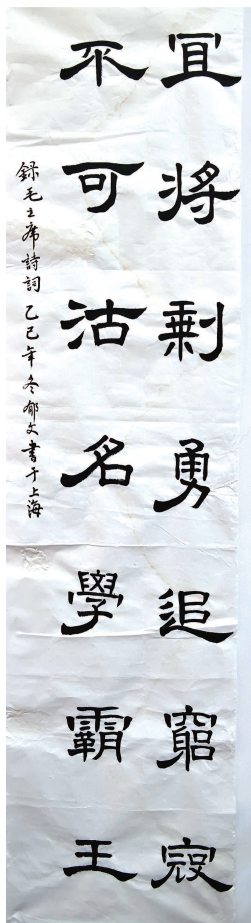 宜将剩勇追窮寇
不可沽名學霸王
録毛主席詩詞 乙巳年冬郁文書于上海